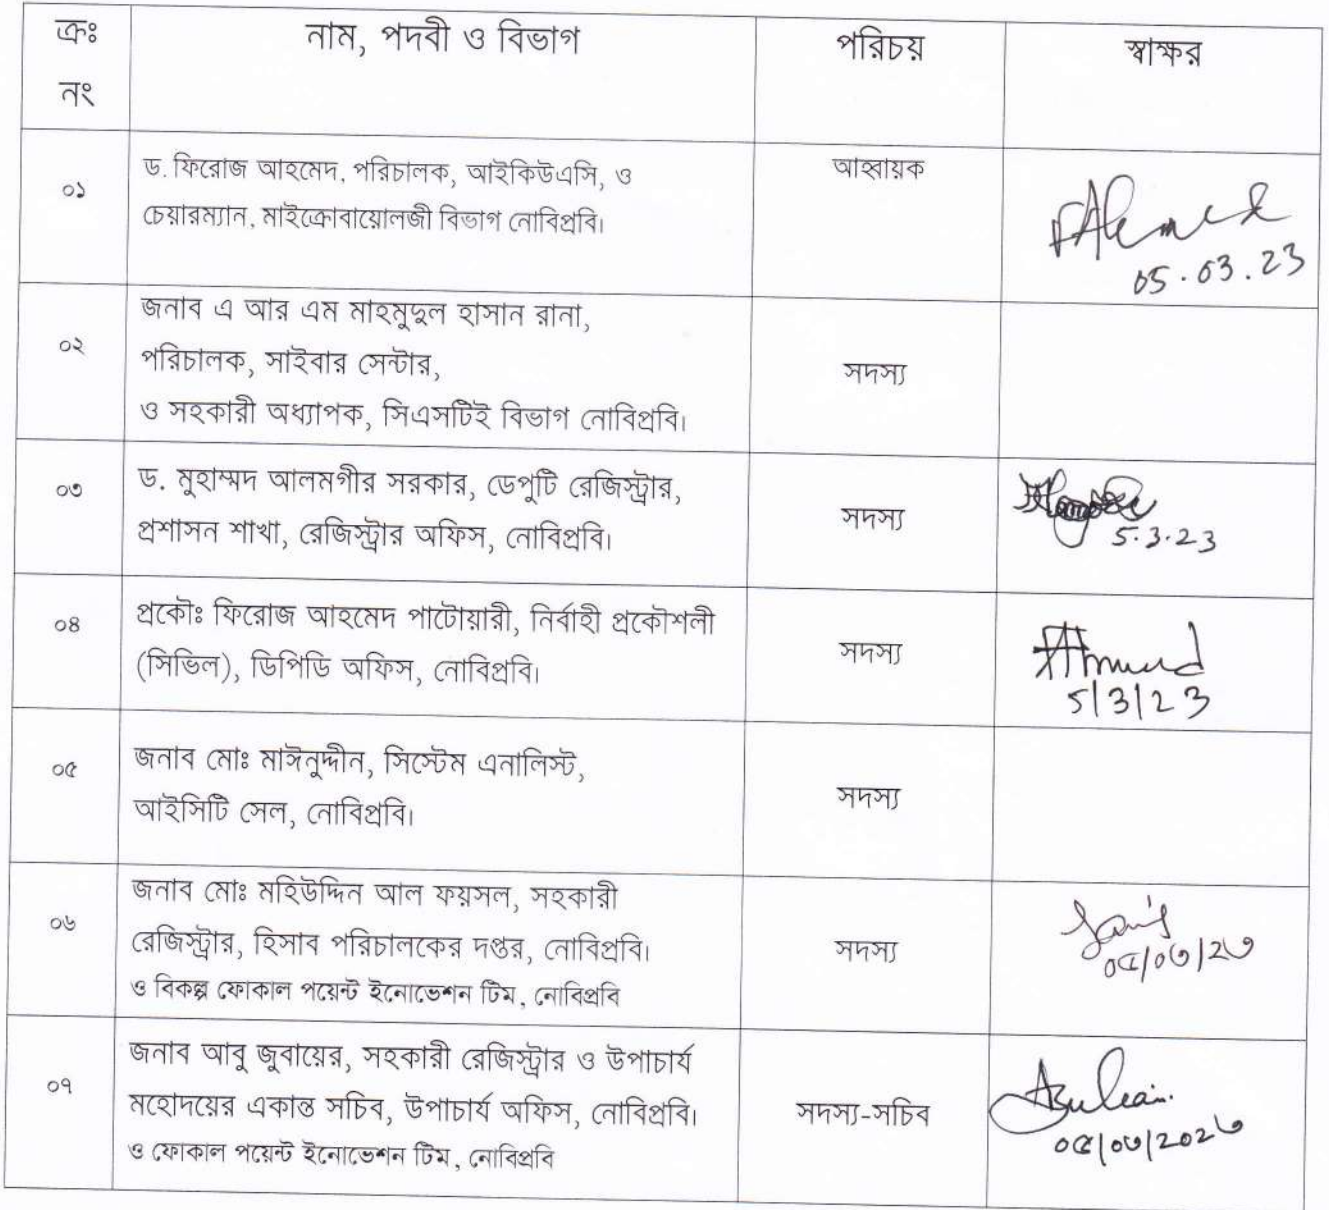 ক্রঃ
নং
নাম, পদবী ও বিভাগ
পরিচয়
স্বাক্ষর
০১
ড. ফিরোজ আহমেদ, পরিচালক, আইকিউএসি, ও
চেয়ারম্যান, মাইক্রোবায়োলজী বিভাগ নোবিপ্রবি।
আহ্বায়ক
05.03.23
০২
জনাব এ আর এম মাহমুদুল হাসান রানা,
পরিচালক, সাইবার সেন্টার,
ও সহকারী অধ্যাপক, সিএসটিই বিভাগ নোবিপ্রবি।
সদস্য
০৩
ড. মুহাম্মদ আলমগীর সরকার, ডেপুটি রেজিস্ট্রার,
প্রশাসন শাখা, রেজিস্ট্রার অফিস, নোবিপ্রবি।
সদস্য
5.3.23
০৪
প্রকৌঃ ফিরোজ আহমেদ পাটোয়ারী, নির্বাহী প্রকৌশলী
(সিভিল), ডিপিডি অফিস, নোবিপ্রবি।
সদস্য
5/3/23
০৫
জনাব মোঃ মাঈনুদ্দীন, সিস্টেম এনালিস্ট,
আইসিটি সেল, নোবিপ্রবি।
সদস্য
০৬
জনাব মোঃ মহিউদ্দিন আল ফয়সল, সহকারী
রেজিস্ট্রার, হিসাব পরিচালকের দপ্তর, নোবিপ্রবি।
ও বিকল্প ফোকাল পয়েন্ট ইনোভেশন টিম, নোবিপ্রবি
সদস্য
০৫/০৩/২৩
০৭
জনাব আবু জুবায়ের, সহকারী রেজিস্ট্রার ও উপাচার্য
মহোদয়ের একান্ত সচিব, উপাচার্য অফিস, নোবিপ্রবি।
ও ফোকাল পয়েন্ট ইনোভেশন টিম, নোবিপ্রবি
সদস্য-সচিব
০৫/০৩/২০২৩